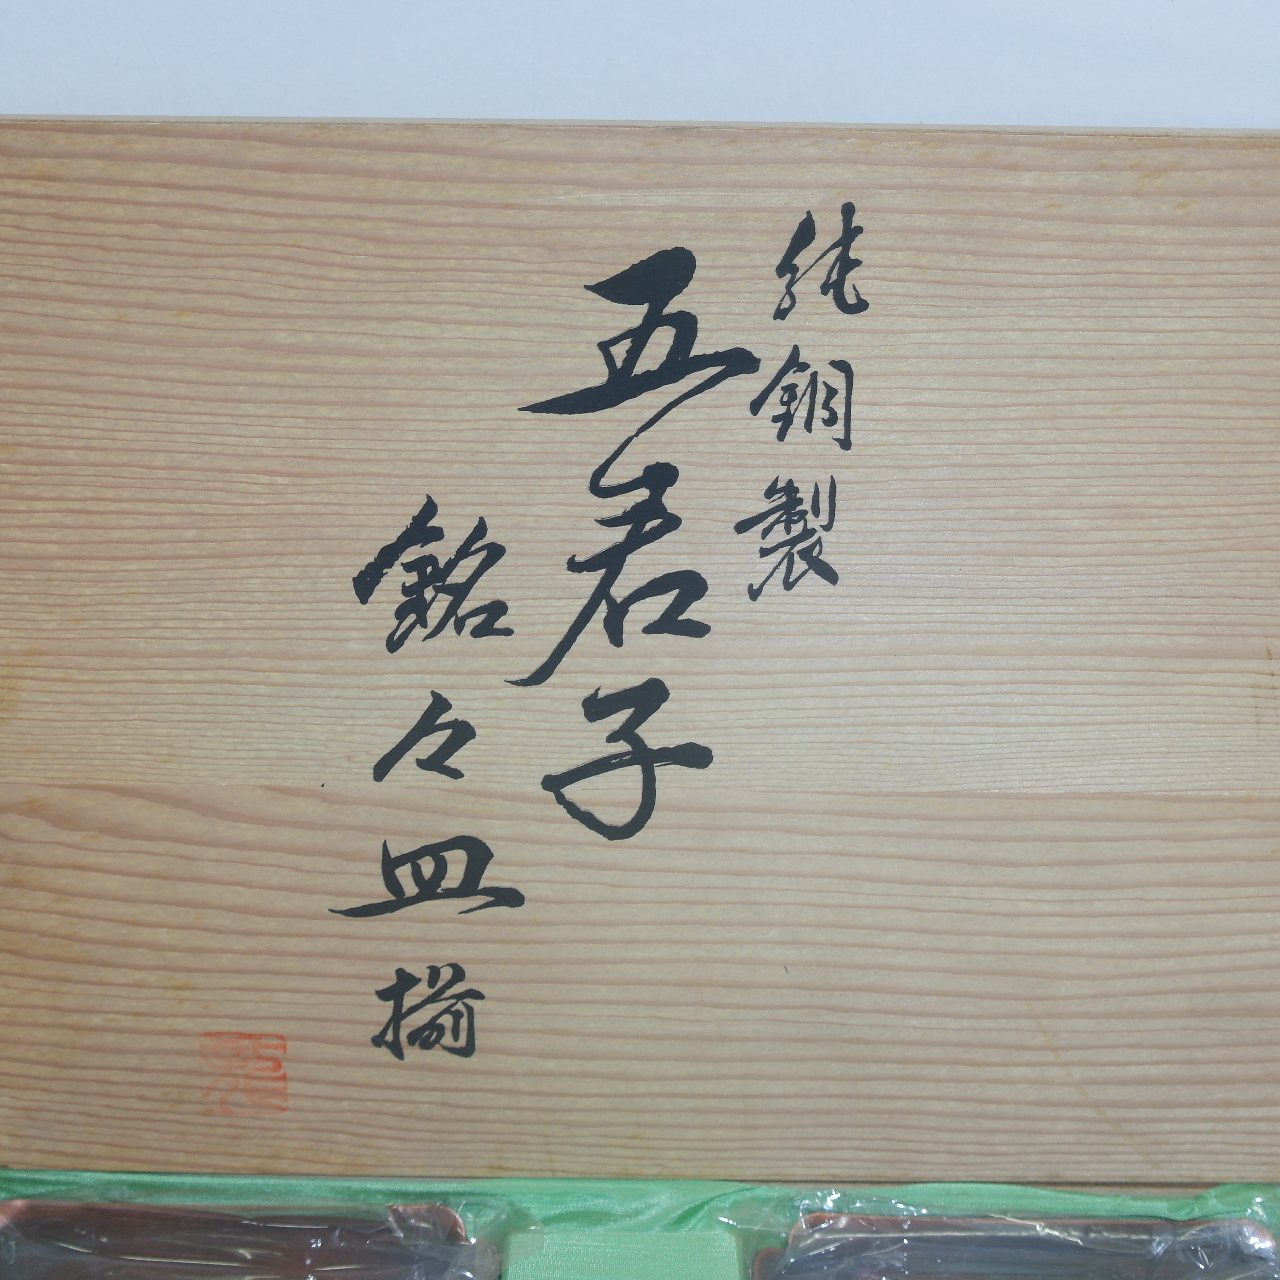 純銅製
五君子
銘々皿揃